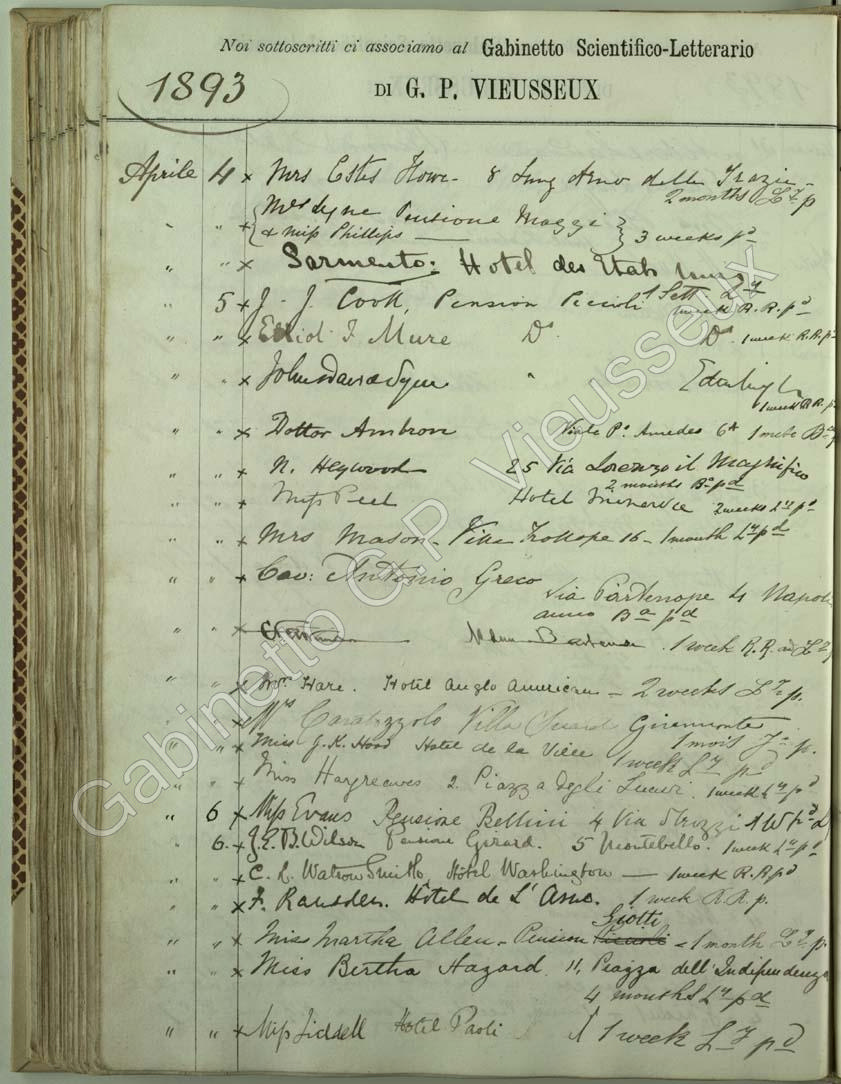 Noi sottoscritti ci associamo al Gabinetto Scientifico-Letterario
1893
DI G. P. VIEUSSEUX
Aprile 4 x Mrs Estes Howe - 8 Lung Arno delle Grazie -
2 months Ly p
" " x Mrs Lyne Pensione Maggi
& Miss Phillips —— 3 weeks pd
" " x Sarmento: Hotel des Etats Unis
5 x J. J. Cook, Pension Piccioli 1 Sett Ly
1 week R.R. pd
" " x Elliot I. Mure Do Do 1 week R.R. pd
" " x " Edinburgh
1 week R R. p
" " x Dottor Ambron Viale Pe Amedeo 6A 1 mese Ba
" " x N. Heywood 25 Via Lorenzo il Magnifico
2 months Ba pd
" " x Miss Peel Hotel Minerva 2 weeks Ly pd
" " x Mrs Mason - Villa Trollope 16 - 1 month Ly pd
" " x Cav: Antonio Greco
Via Partenope 4 Napoli
anno Ba pd
" " x 1 week R.R. and Ly
" " x Hare. Hotel Anglo American - 2 weeks Ly p.
" " x Mrs Caratzzolo Villa Giramonte
1 mois p.
" " x Miss J. K. Hood Hotel de la Ville
1 week Ly pd
" " x Miss Hargreaves 2. Piazza degli Giudici 1 week Ly pd
" 6 x Miss Evans Pensione Bellini 4 Via Strozzi 1 W pd
" 6. x J. E. B. Wilson Pensione Girard. 5 Montebello. 1 week Ly pd
" " x C. L. Watson Smith, Hôtel Washington — 1 week R.R pd
" " x F. Ransden. Hôtel de L'Arno. 1 week R.R. p.
Giotti
" " x Miss Martha Allen - Pension Piccioli - 1 month Ly p.
" " x Miss Bertha Hazard 11, Piazza dell'Indipendenza
4 months Ly pd
" " x Miss Liddell Hotel Paoli 1 week Ly pd
Gabinetto G.P. Vieusseux